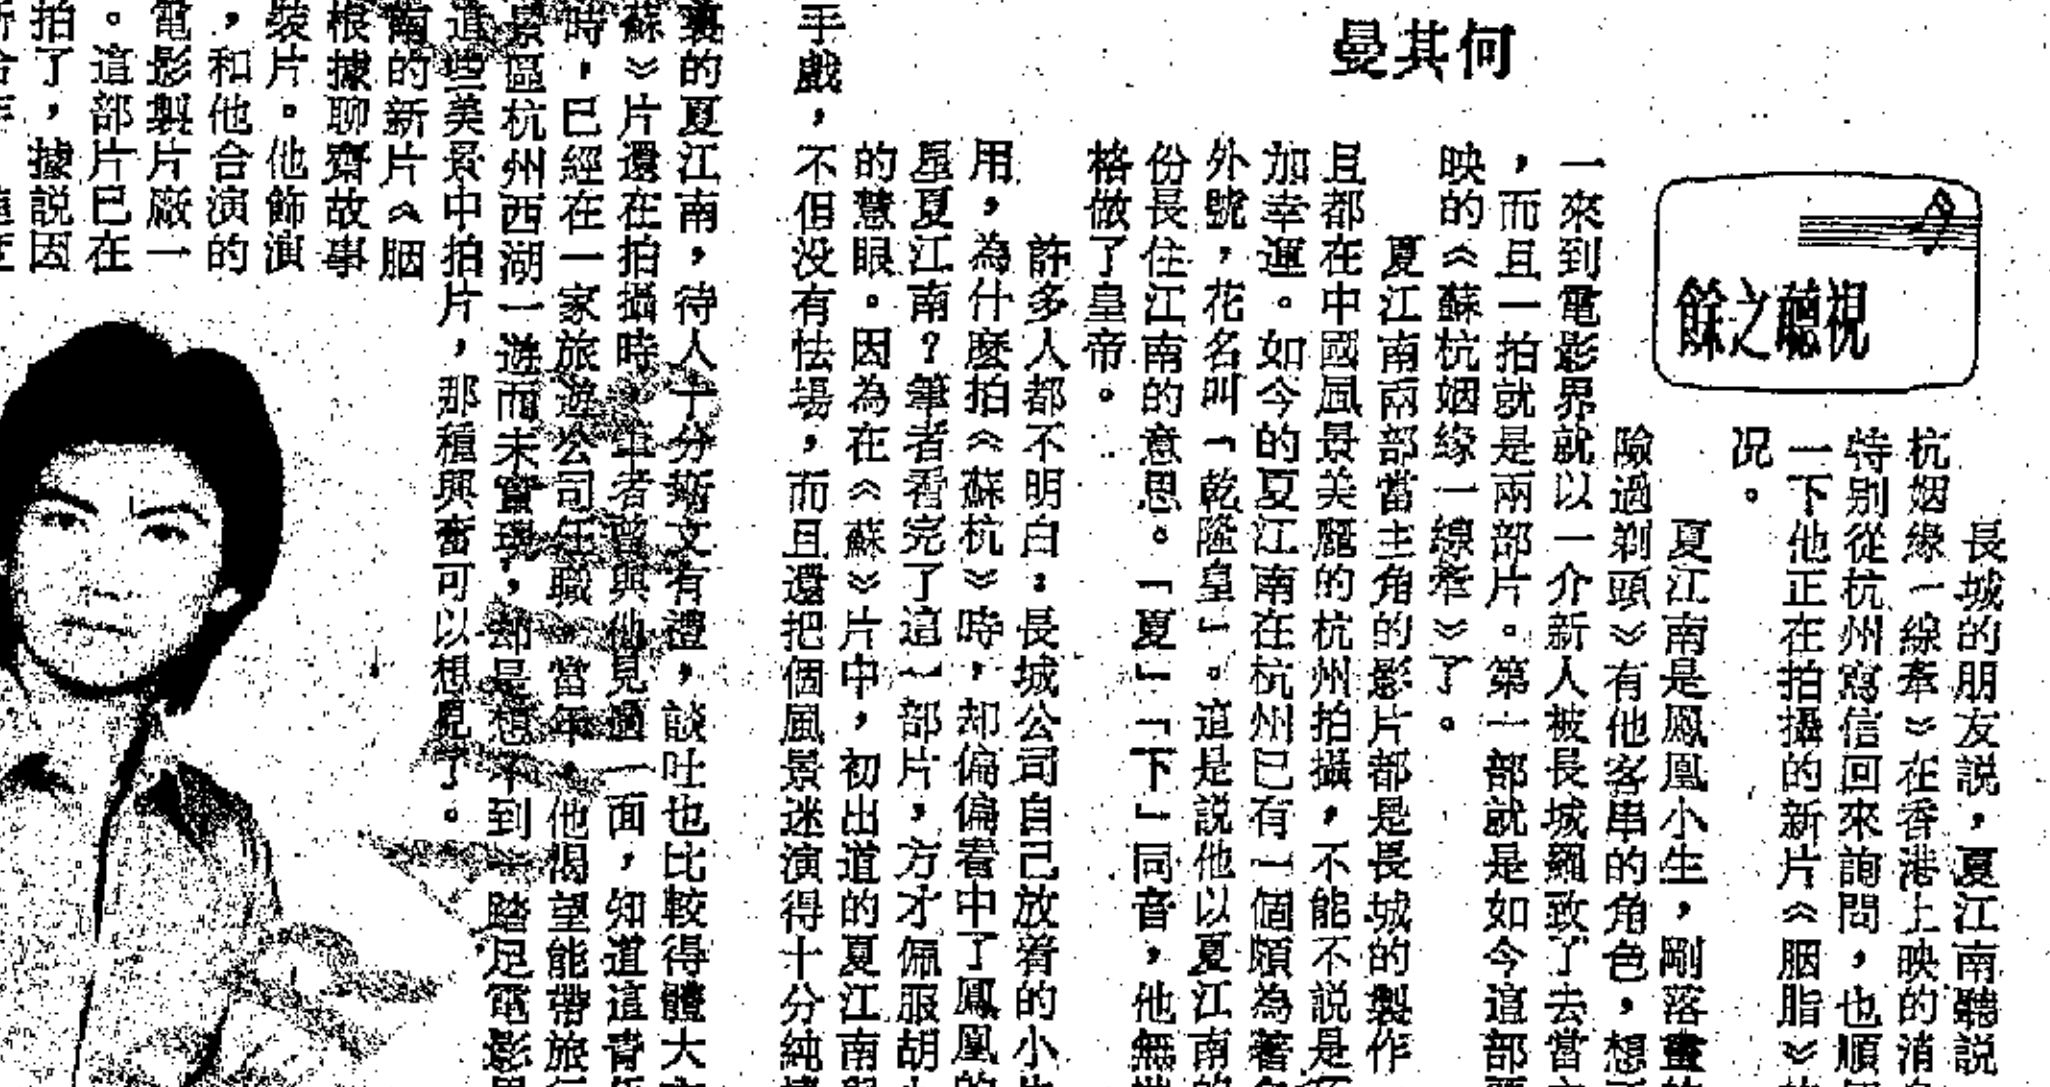 何其曼
視聽之餘
長城的朋友説，夏江南聽説
杭姻緣一線牽》在香港上映的消
特别從杭州寫信回來詢問，也順
一下他正在拍攝的新片《胭脂》
况。
夏江南是鳳凰小生，剛落畫的
險過剃頭》有他客串的角色，想
一來到電影界就以一介新人被長城羅致了去當
，而且一拍就是兩部片。第一部就是如今這部
映的《蘇杭姻緣一線牽》了。
夏江南兩部當主角的影片都是長城的製作
且都在中國風景美麗的杭州拍攝，不能不説是
加幸運。如今的夏江南在杭州已有一個頗為著
外號，花名叫「乾隆皇」。這是説他以夏江南的
份長住江南的意思。「夏」「下」同音，他無
格做了皇帝。
許多人都不明白：長城公司自己放着的小
用，為什麽拍《蘇杭》時，却偏偏看中了鳳凰的
星夏江南？筆者看完了這一部片，方才佩服胡
的慧眼。因為在《蘇》片中，初出道的夏江南
手戲，不但没有怯場，而且還把個風景迷演得十分純
裏的夏江南，待人十分斯文有禮，談吐也比較得體大
蘇》片還在拍攝時，筆者曾與他見過一面，知道這青
時，已經在一家旅遊公司任職。當年，他渴望能帶旅
景區杭州西湖一遊而未實現，却是想不到一踏足電影
這些美景中拍片，那種興奮可以想見了。
南的新片《胭
根據聊齋故事
裝片。他飾演
，和他合演的
電影製片廠一
。這部片已在
拍了，據説因